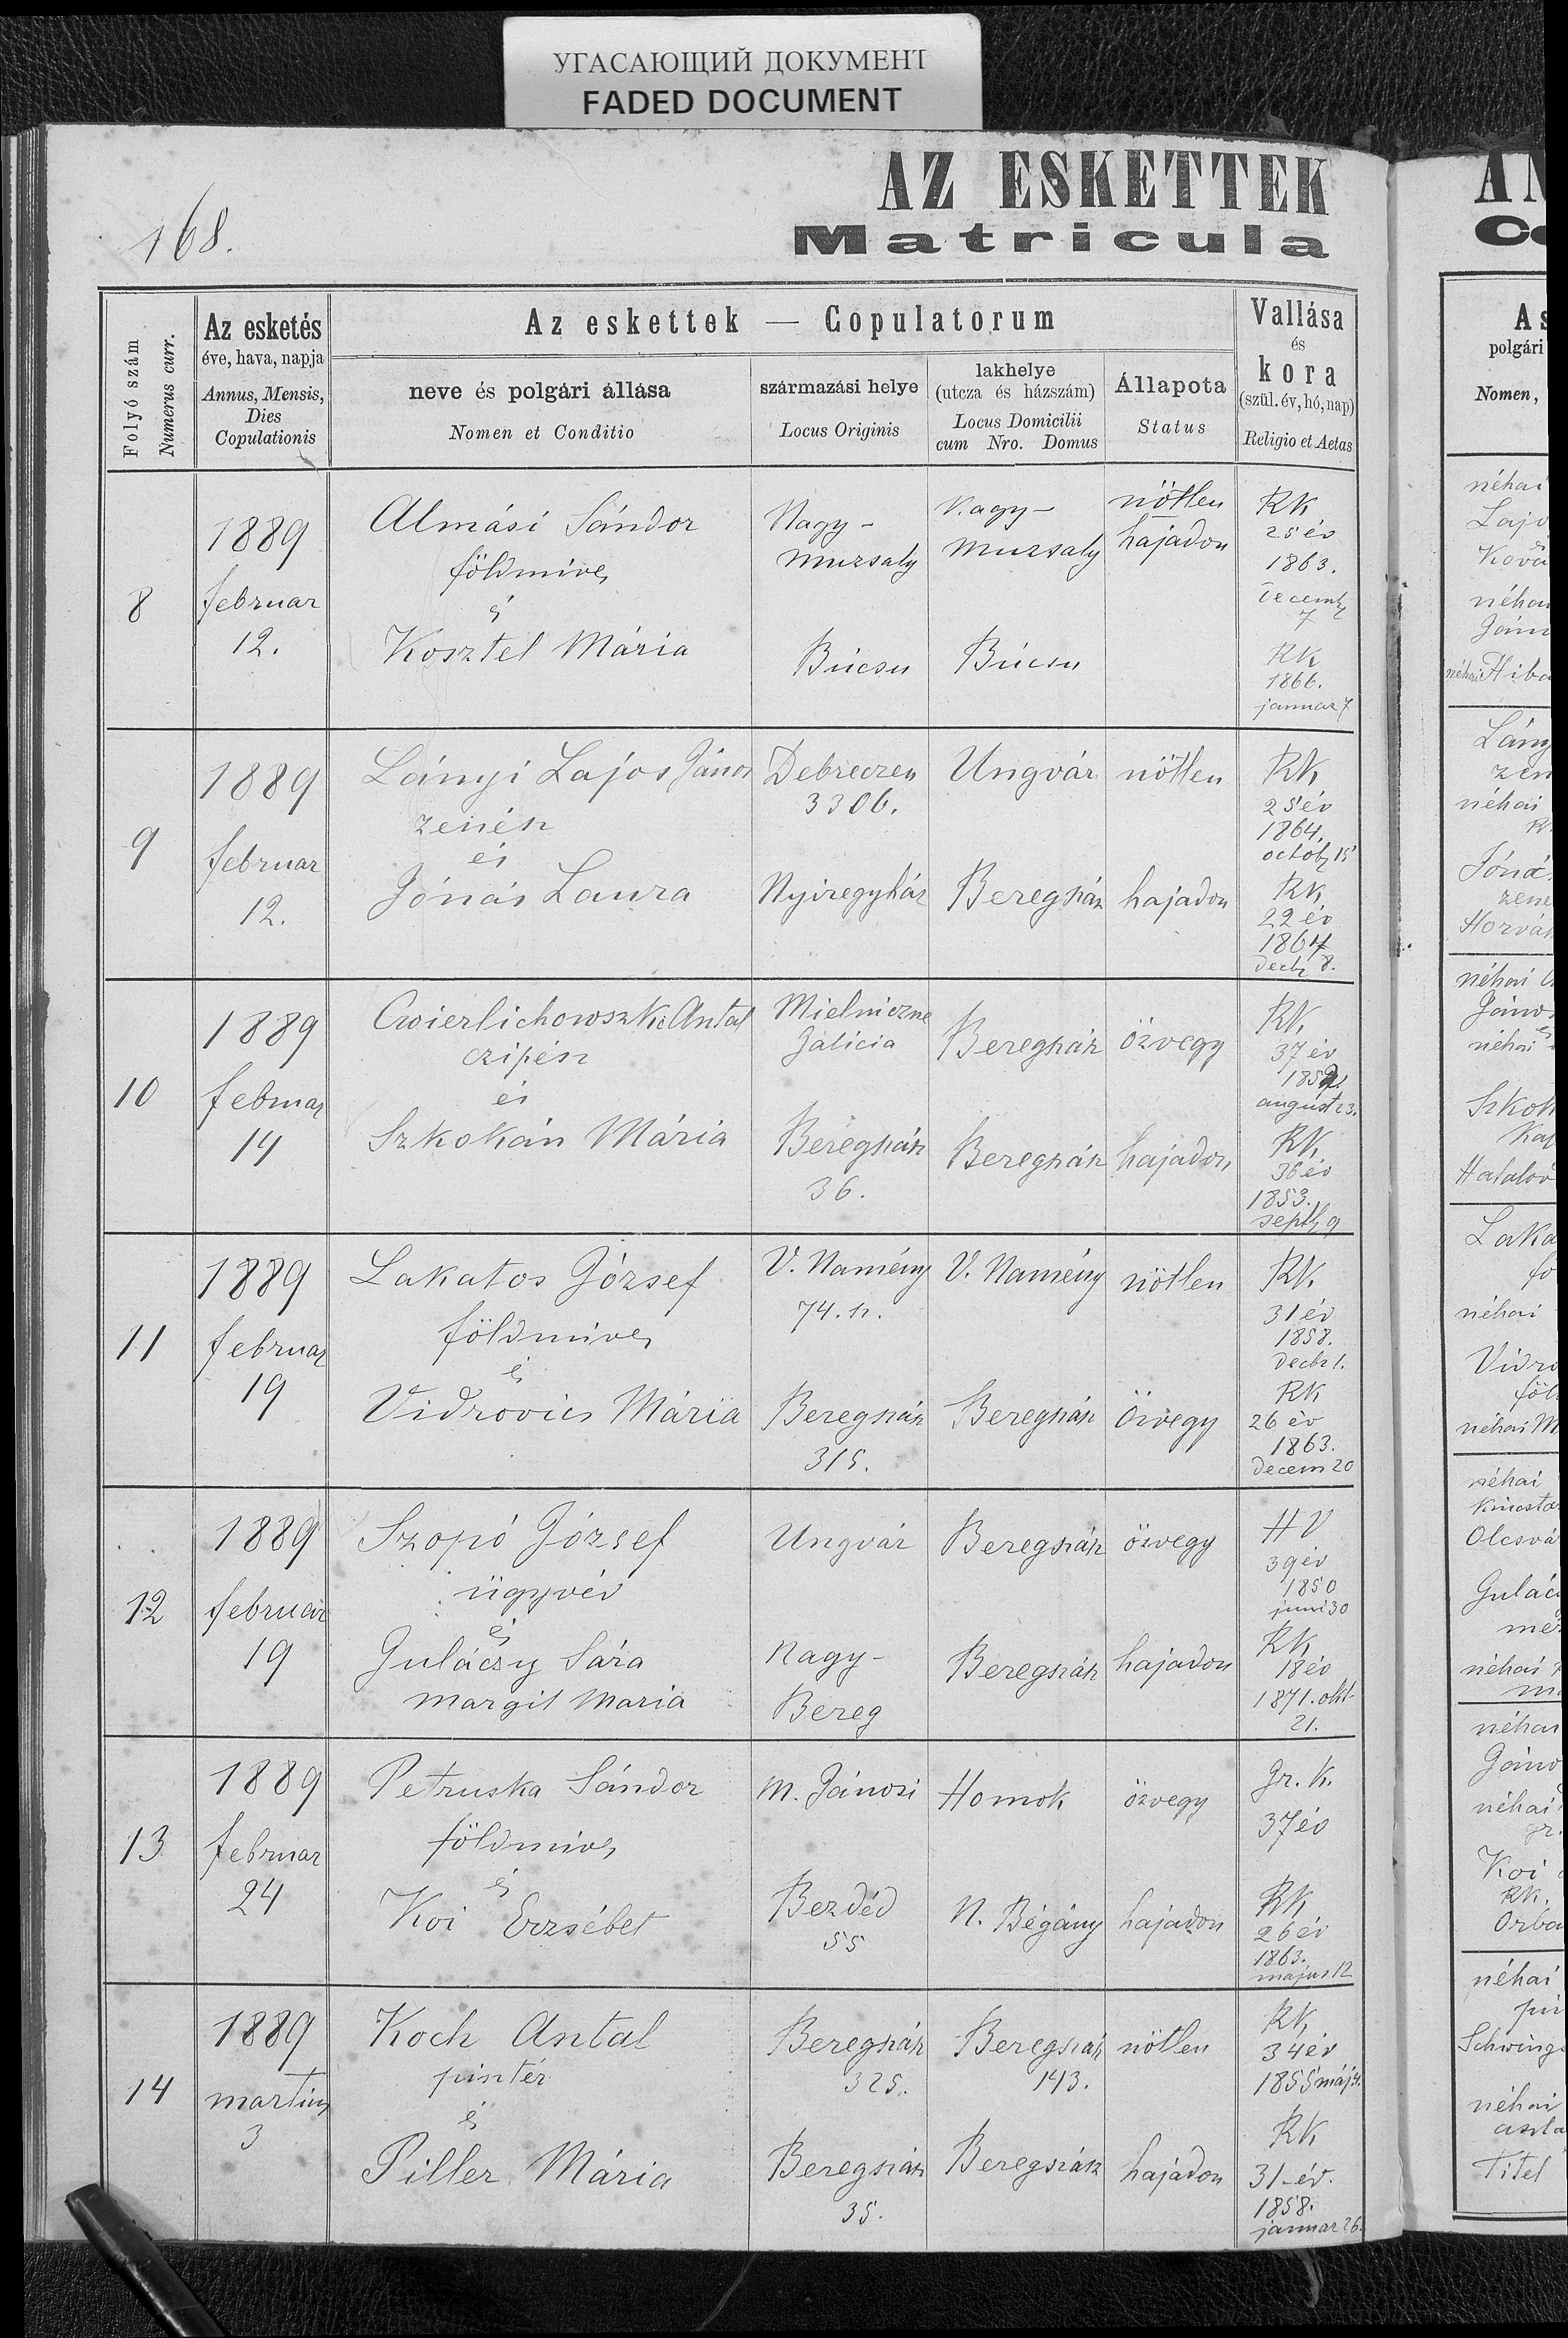 УГАСАЮЩИЙ ДОКУМЕНТ
FADED DOCUMENT
168.
AZ ESKETTEK
Matricula
Folyó szám
Numerus curr.
Az esketés
éve, hava, napja
Annus, Mensis,
Dies
Copulationis
Az eskettek — Copulatorum
neve és polgári állása
Nomen et Conditio
származási helye
Locus Originis
lakhelye
(utcza és házszám)
Locus Domicilii
cum Nro. Domus
Állapota
Status
Vallása
és
kora
(szül. év, hó, nap)
Religio et Aetas
8
1889
februar
12.
Almási Sándor
földmives
és
Kosztel Mária
Nagy-
muzsaly
Búcsu
Nagy-
muzsaly
Búcsu
nötlen
hajadon
RK
25 év
1863.
7
RK
1866.
januar 7
9
1889
februar
12.
Lányi Lajos János
zenész
és
Jónás Laura
Debreczen
3306.
Nyiregyház
Ungvár
Beregszász
nötlen
hajadon
RK
25 év
1864.
octób 15
RK
22 év
1864
decb 8.
10
1889
februar
14
Cwierlichowszki Antal
czipész
és
Szkokán Mária
Mielniczne
Galicia
Beregszász
36.
Beregszász
Beregszász
özvegy
hajadon
RK
37 év
august 23.
RK
36 év
1853.
septb 9
11
1889
februar
19
Lakatos József
földmives
és
Vidrovics Mária
V. Namény
74. h.
Beregszász
315.
V. Namény
Beregszász
nötlen
özvegy
RK
31 év
1858.
decbr 1.
RK
26 év
1863.
decem 20
12
1889
februar
19
Szopó József
ügyvéd
és
Gulácsy Sára
margit maria
Ungvár
Nagy-
Bereg
Beregszász
Beregszász
özvegy
hajadon
HV
39 év
1850
juni 30
RK
18 év
1871. okt.
21.
13
1889
februar
24
Petruska Sándor
földmives
és
Koi Erzsébet
M. Jánosi
Bezdéd
55
Homok
N. Bégány
özvegy
hajadon
Gr. K.
37 év
RK
26 év
1863.
május 12
14
1889
martius
3
Koch Antal
pintér
és
Piller Mária
Beregszász
325.
Beregszász
35.
Beregszász
143.
Beregszász
nötlen
hajadon
RK
34 év
1855 máj 4.
RK
31 év.
1858.
januar 26.
polgári
Nomen,
néhai
néhai
Szkok
Hatalov
néhai
néhai M
néhai
Olcsvá
néhai
néhai
Koi
RK.
Orba
néhai
néhai
Titel